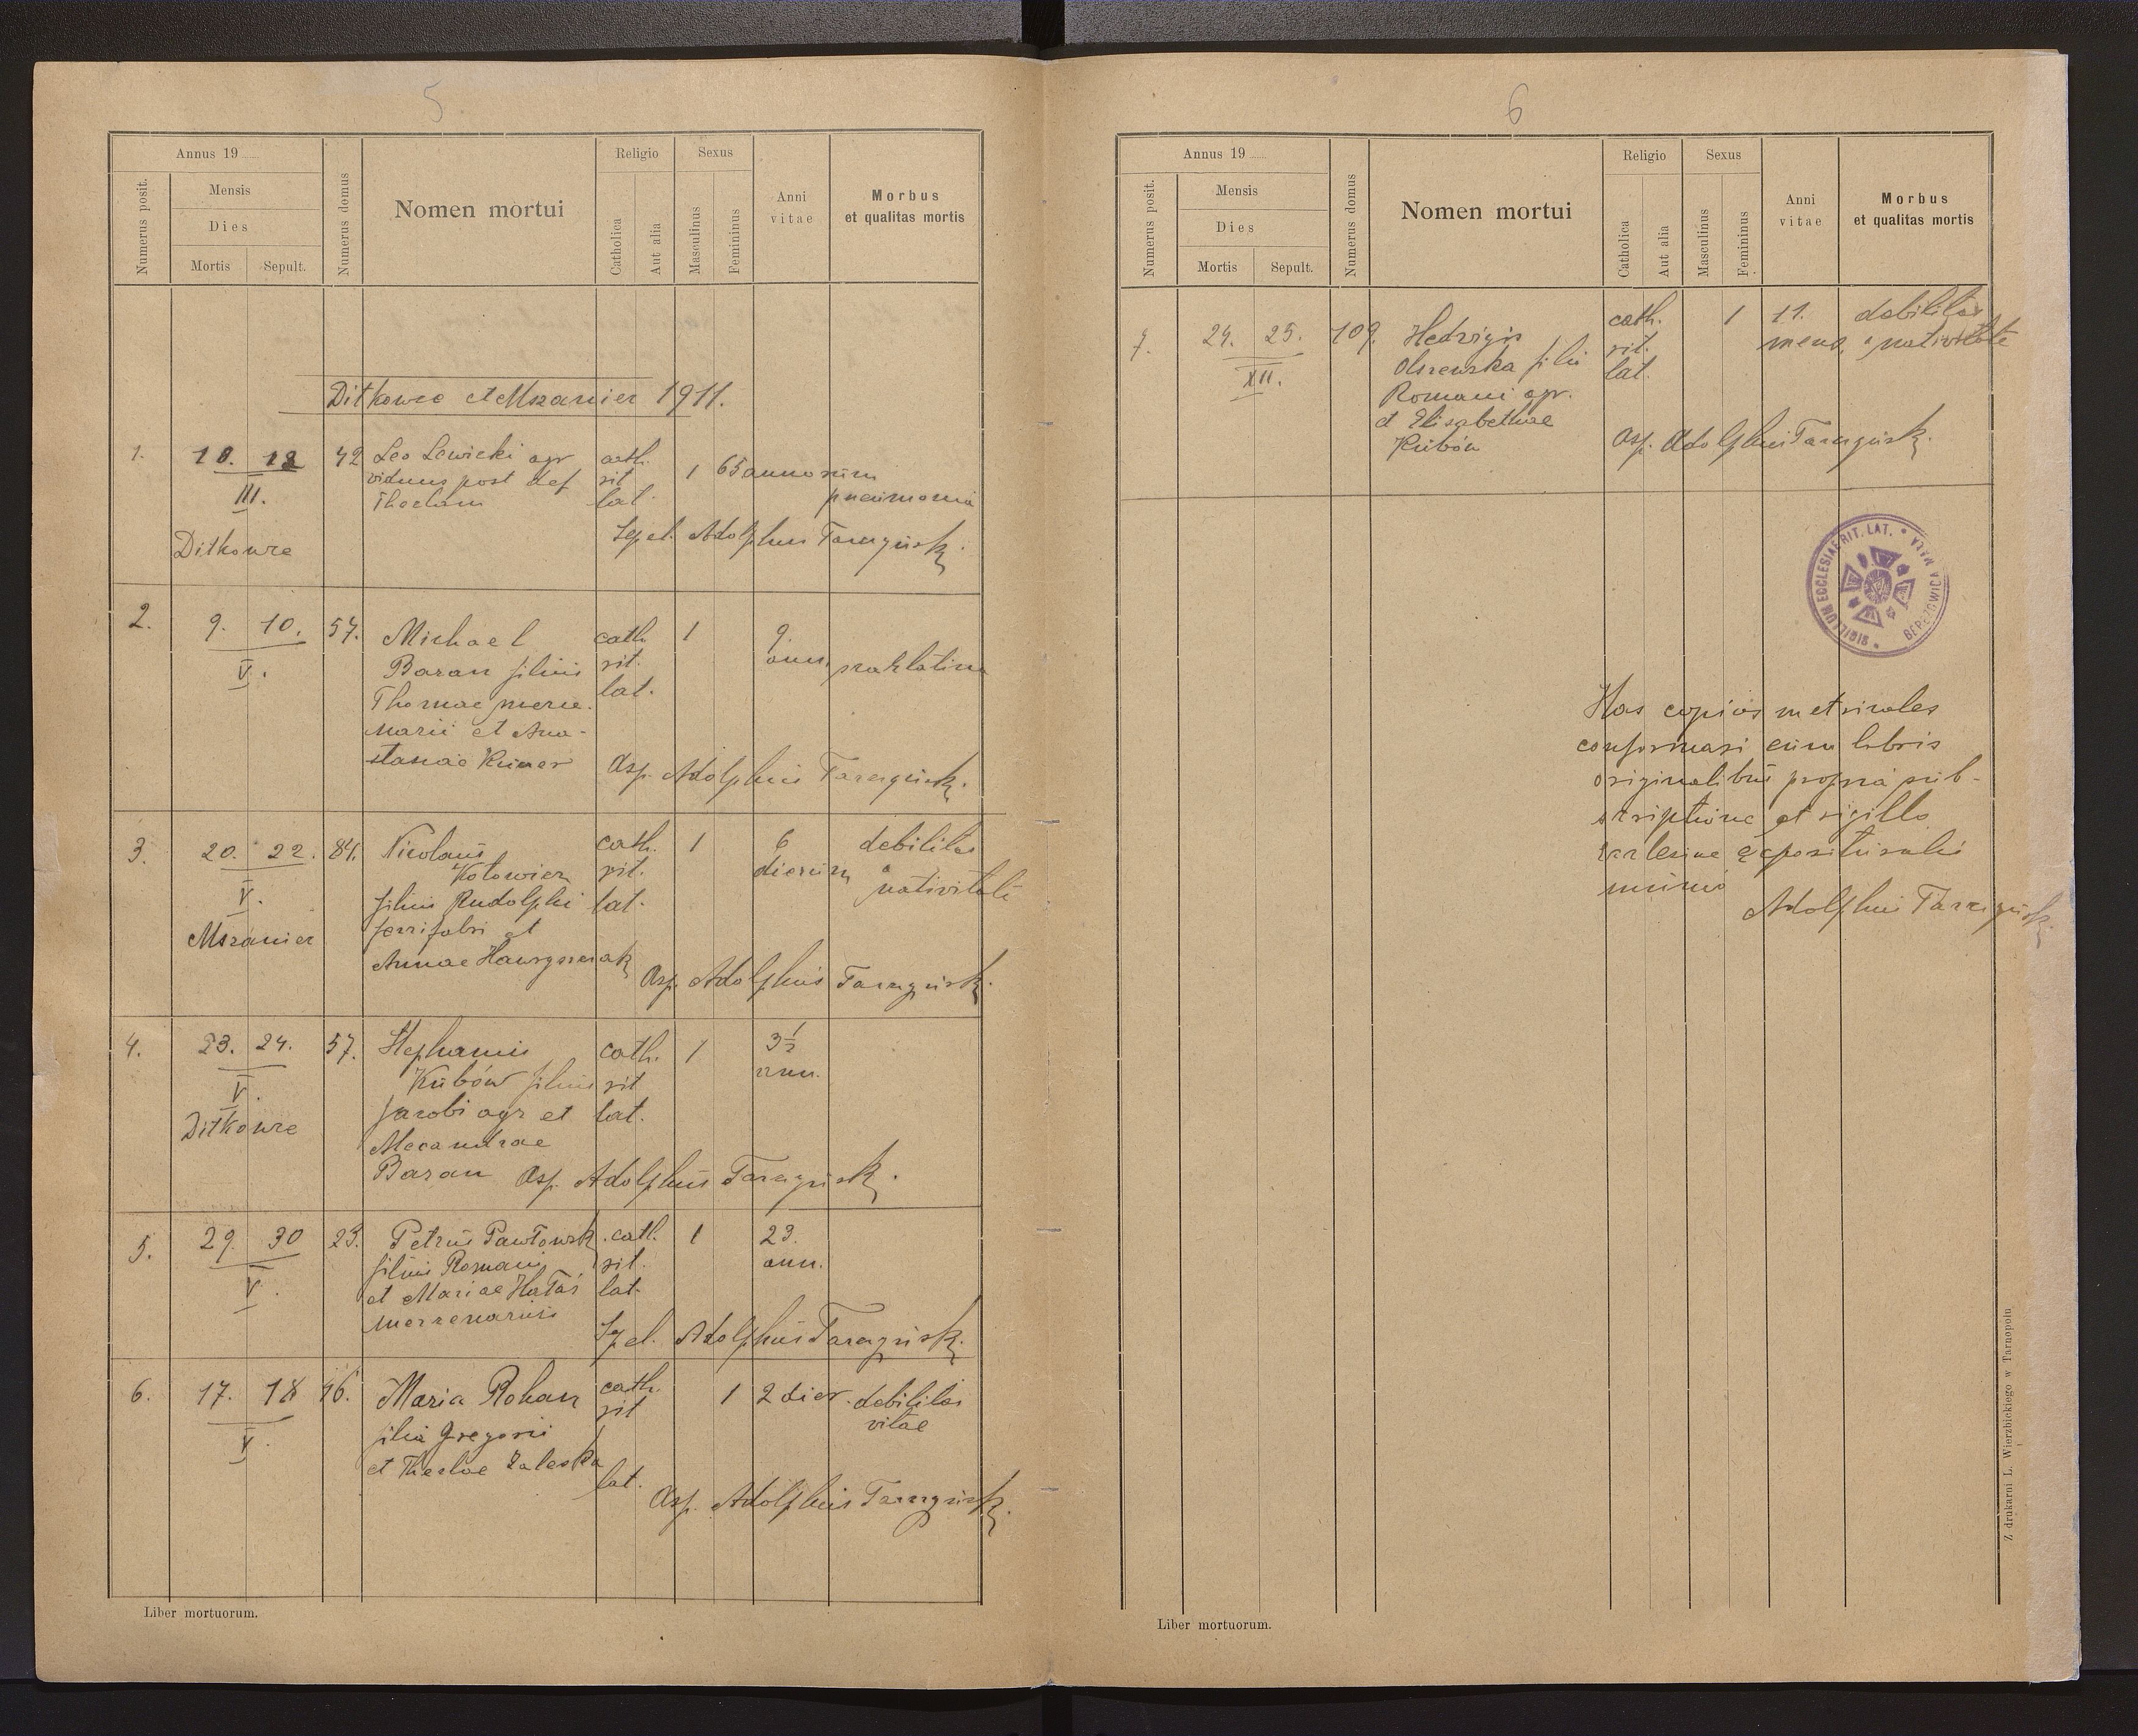 5
Annus 19
Numerus posit.
Mensis
Dies
Mortis
Sepult.
Numerus domus
Nomen mortui
Religio
Catholica
Aut alia
Sexus
Masculinus
Femininus
Anni vitae
Morbus
et qualitas mortis
Ditkowce et Mszaniec 1911.
1. 42 Leo Lewicki agr cath.
viduus post def rit 1 65 annorum
III. lat. pneumonia
Ditkowce
Adolphus
2. 9. 10. 57. Michael cath. 1 9.
V. Baran filius rit. ann.
Thomae merce- lat.
narii et Ana-
Asp. Adolphus
3. 20. 22. 84. Nicolaus cath. 1 6 debilitas
rit. dierum a nativitate
V. filius Rudolphi lat.
Mszaniec ferrifabri et
Annae
Asp. Adolphus
4. 23. 24. 57. Stephanus cath. 1 3 1/2
V. Kubów filius rit ann.
Ditkowce Jacobi agr et lat.
Baran Asp. Adolphus
5. 29. 30 23. Petrus cath. 1 23.
V. filius Romani rit. ann.
et Mariae lat.
mercenarius
Adolphus
6. 17. 18 Maria Rohan cath. 1 2 dier. debilitas
V. filia Gregorii rit vitae
et Theclae Zaleska
lat.
Asp. Adolphus
Liber mortuorum.
6
Annus 19
Numerus posit.
Mensis
Dies
Mortis
Sepult.
Numerus domus
Nomen mortui
Religio
Catholica
Aut alia
Sexus
Masculinus
Femininus
Anni vitae
Morbus
et qualitas mortis
7. 24. 25. 109. Hedvigis cath. 1 11. debilitas
XII. Olszewska filia rit. mens. a nativitate
Romani agr. lat.
et Elisabethae
Kubów Asp. Adolphus
SIGILLUM ECCLESIAE RIT. LAT.
Has copias metricales
conformari cum libris
originalibus propria sub-
scriptione et sigillo
munio
Adolphus
Liber mortuorum.
Z drukarni L. Wierzbickiego w Tarnopolu